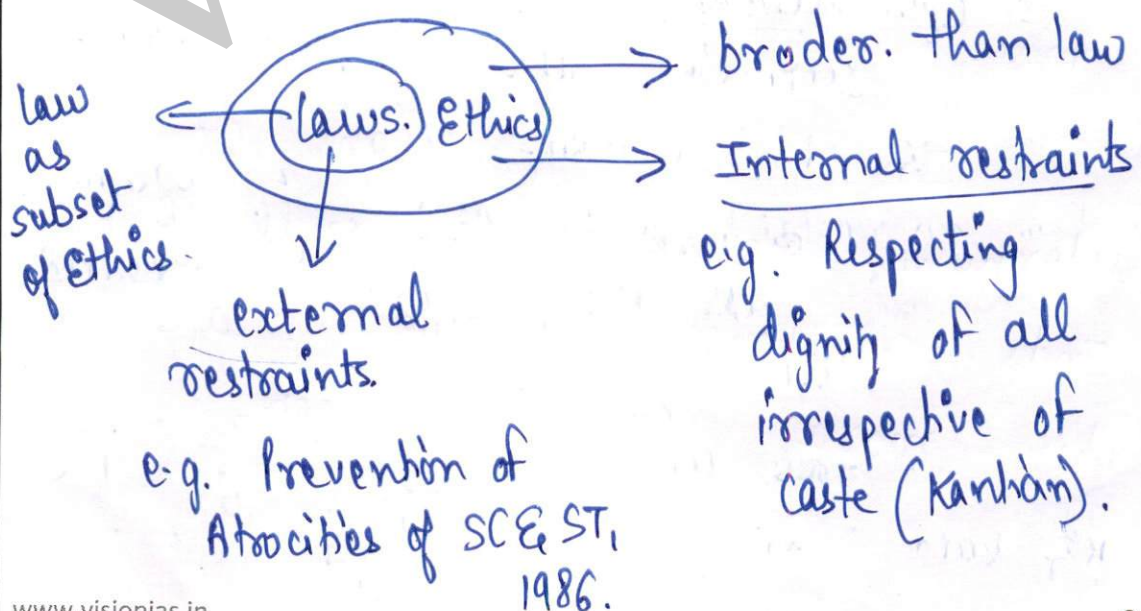 law
as
subset
of Ethics.
laws.
Ethics
broder. than law
Internal restraints
e.g. Respecting
dignity of all
irrespective of
caste (Kantian).
external
restraints.
e.g. Prevention of
Atrocities of SC & ST,
1986.
www.visionias.in